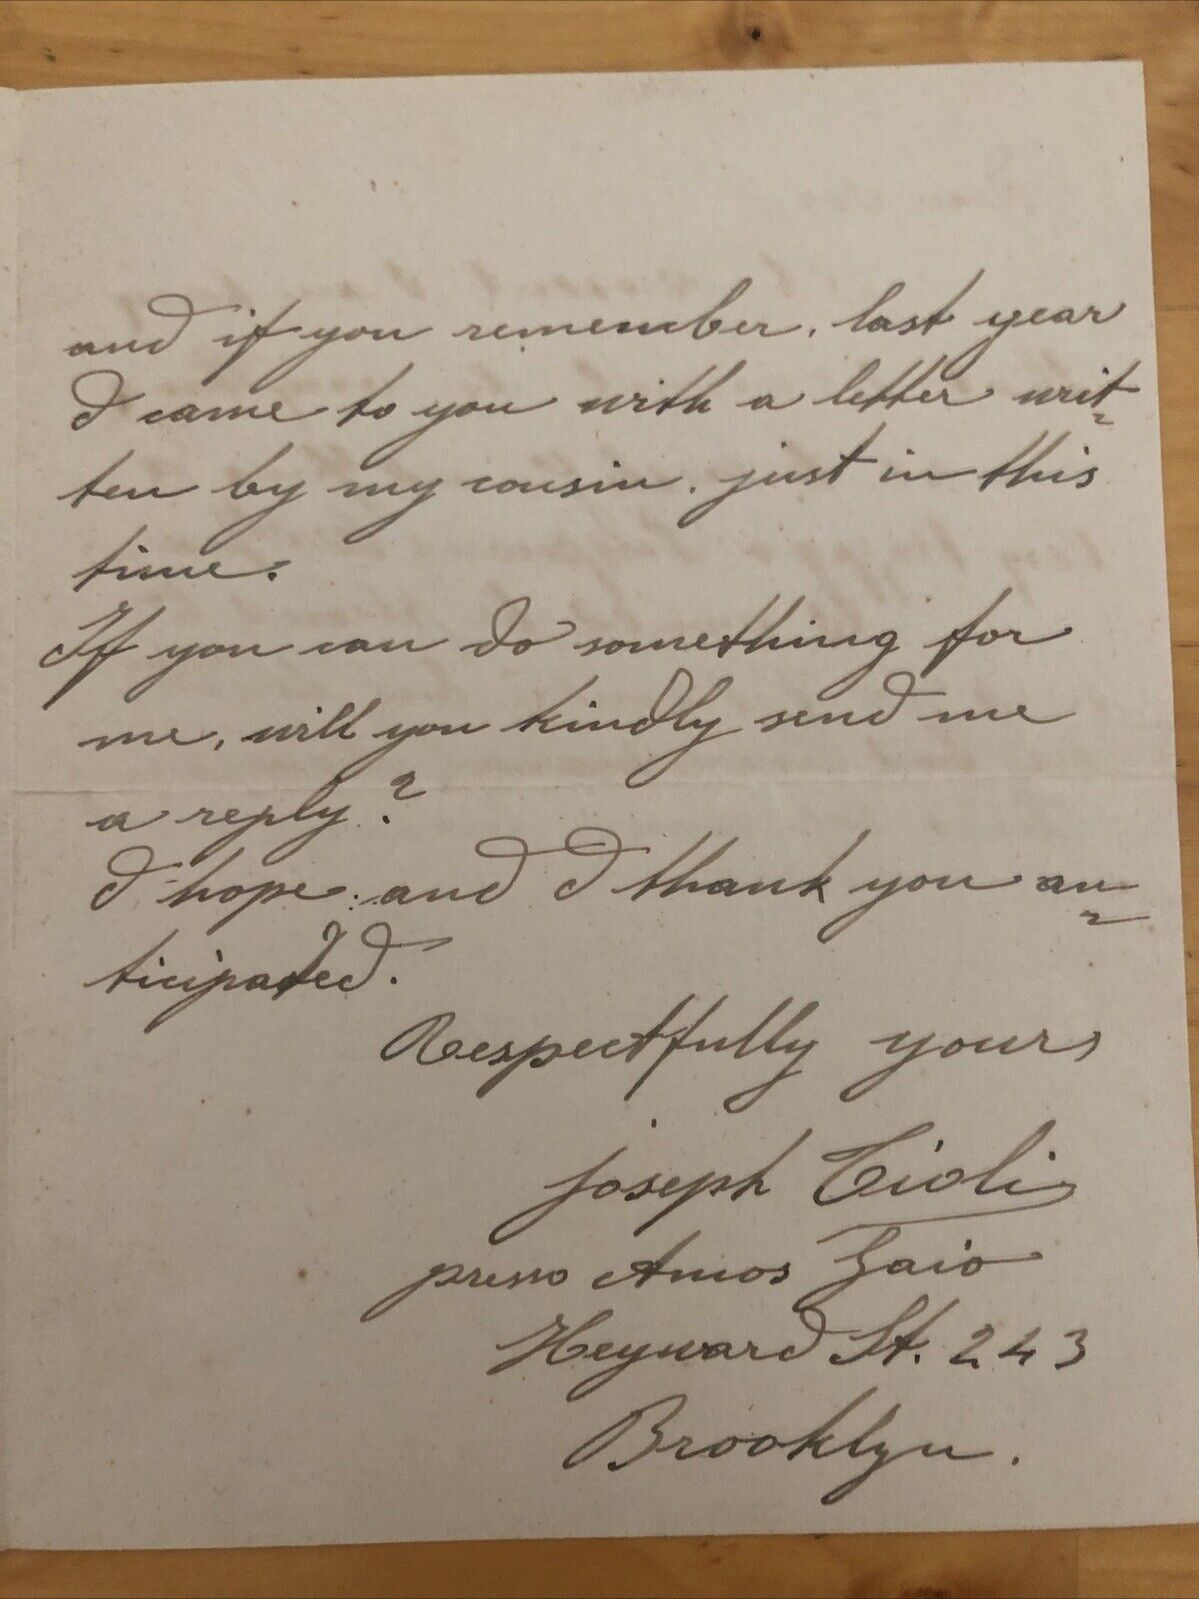 and if you remember, last year
I came to you with a letter writ-
ten by my cousin, just in this
time.
If you can do something for
me, will you kindly send me
a reply?
I hope: and I thank you an-
ticipated.
Respectfully yours
Joseph
presso Amos
Heyward St. 243
Brooklyn.